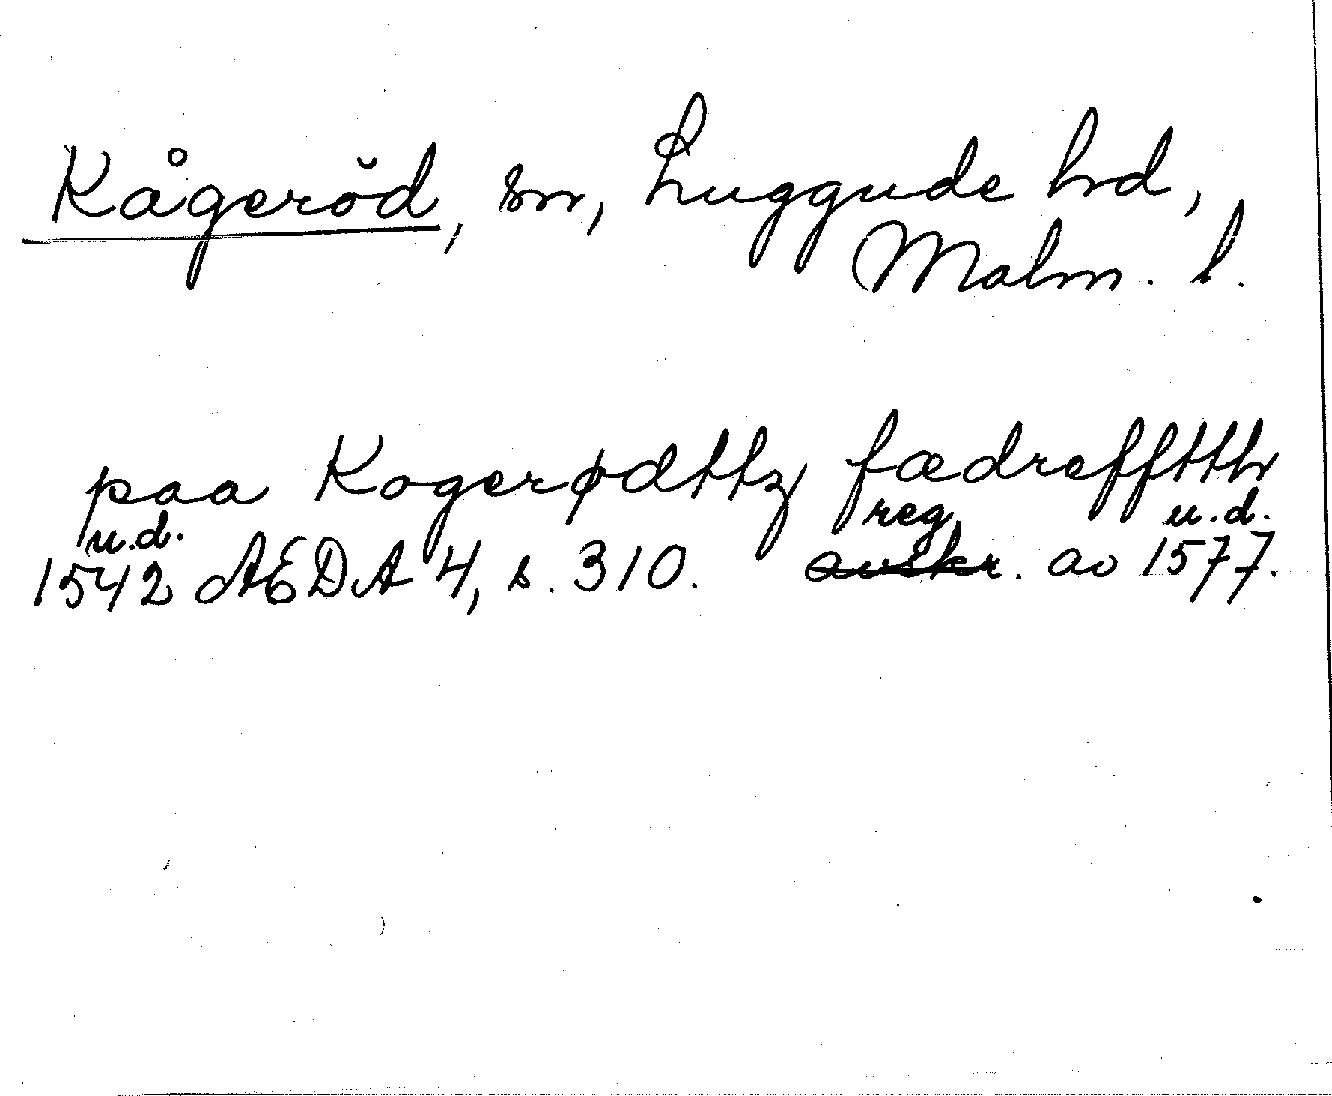 Kågeröd, sn, Luggude hd,
Malm. l.
paa Kogerødttz fædrefftth
u.d. reg. u.d.
1542 AEDA 4, s. 310. avskr. av 1577.